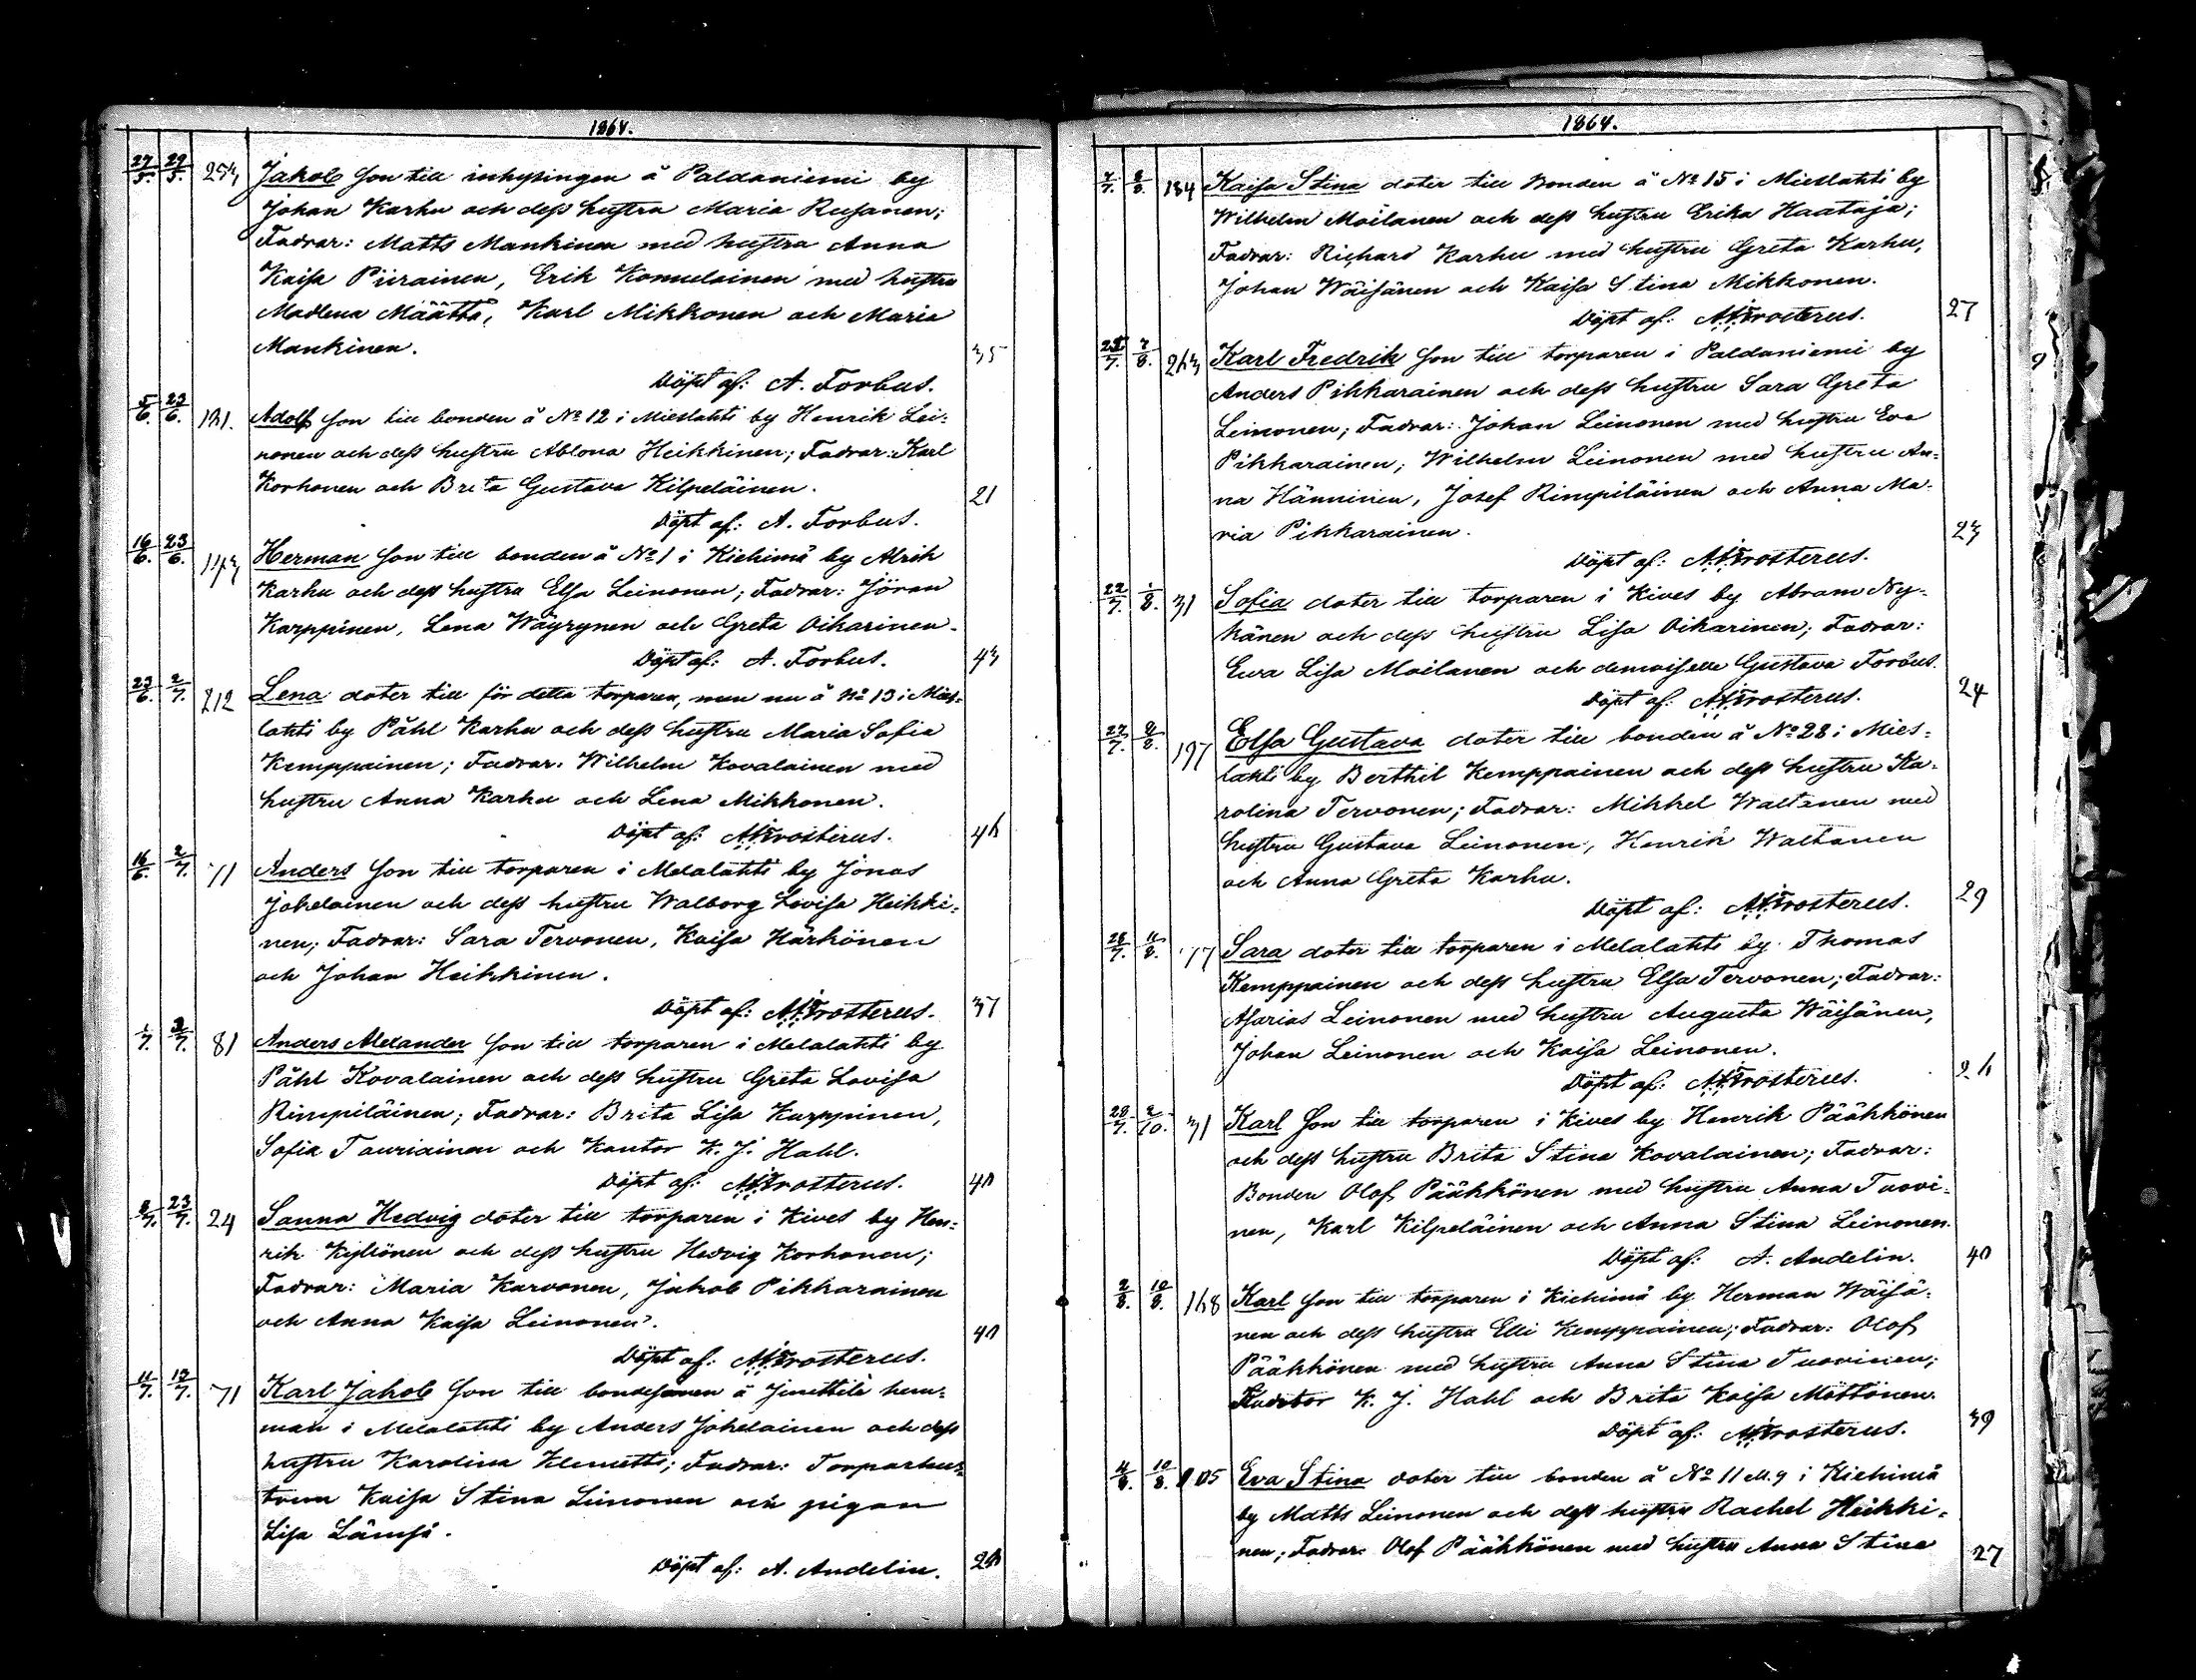 1864.
27/5. 29/5. 253 Jakob Son till inhysingen å Paldaniemi by
Johan Karhu och dess hustru Maria Rusanen;
Fadrar: Matts Mankinen med hustru Anna
Kaisa Piirainen, Erik Komulainen med hustru
Madlena Määttä, Karl Mikkonen och Maria
Mankinen. 35
Döpt af: A. Forbus.
5/6. 23/6. 131. Adolf Son till bonden å No 12 i Mieslahti by Henrik Lei-
nonen och dess hustru Ablona Heikkinen; Fadrar: Karl
Korhonen och Breta Gustava Kilpeläinen. 21
Döpt af: A. Forbus.
16/6. 23/6. Herman Son till bonden å No 1 i Kiehimä by Alrik
Karhu och dess hustru Elsa Leinonen; Fadrar: Jöran
Karppinen, Lena Wäyrynen och Greta Oikarinen.
Döpt af: A. Forbus. 43
23/6. 2/7. 212 Lena doter till för detta torparen, men nu å No 13 i Mies-
lahti by Påhl Karhu och dess hustru Maria Sofia
Kemppainen; Fadrar: Wilhelm Kovalainen med
hustru Anna Karhu och Lena Mikkonen.
Döpt af: A. Frosterus.
16/6. 2/7. 71 Anders Son till torparen i Melalahti by Jonas
Jokelainen och dess hustru Walborg Lovisa Heikki-
nen; Fadrar: Sara Tervonen, Kaisa Härkönen
och Johan Heikkinen.
Döpt af: A. Frosterus. 37
1/7. 3/7. 81 Anders Alexander Son till torparen i Melalahti by
Påhl Kovalainen och dess hustru Greta Lovisa
Rimpiläinen; Fadrar: Brita Lisa Karppinen,
Sofia Tauriainen och Kantor K. J. Hahl.
Döpt af: A. Frosterus. 40
8/7. 23/7. 24 Sanna Hedvig doter till torparen i Kives by Hen-
rik Kyllönen och dess hustru Hedvig Korhonen;
Fadrar: Maria Karvonen, Jakob Pikkarainen
och Anna Kaisa Leinonen. 40
Döpt af: A. Frosterus.
11/7. 12/7. 71 Karl Jakob Son till bondesonen å Jinittilä hem-
man i Melalahti by Anders Jokelainen och dess
hustru Karolina Klemetti; Fadrar: Torparhus-
trun Kaisa Stina Leinonen och pigan
Lisa Lämsä.
Döpt af: A. Andelin.
1864.
7/7. 8/8. 184 Kaisa Stina doter till Bonden å No 15 i Mieslahti by
Wilhelm Moilanen och dess hustru Erika Haataja;
Fadrar: Richard Karhu med hustru Greta Karhu,
Johan Wäisänen och Kaisa Stina Mikkonen.
Döpt af: A. Frosterus. 27
7/8. 263 Karl Fredrik Son till torparen i Paldaniemi by
Anders Pikkarainen och dess hustru Sara Greta
Leinonen; Fadrar: Johan Leinonen med hustru Eva
Pikkarainen; Wilhelm Leinonen med hustru An-
na Hänninen, Josef Rimpiläinen och Anna Ma-
ria Pikkarainen. 23
Döpt af: A. Frosterus.
22/7. 1/8. 31 Sofia doter till torparen i Kives by Abram Ny-
känen och dess hustru Lisa Oikarinen; Fadrar:
Ewa Lisa Moilanen och demoiselle Gustava Forbus.
Döpt af: A. Frosterus. 24
27/7. 9/8. 197 Elsa Gustava doter till bonden å No 28 i Mies-
lahti by Berthil Kemppainen och dess hustru Ka-
rolina Tervonen; Fadrar: Mikkel Waltanen med
hustru Gustava Leinonen, Henrik Waltanen
och Anna Greta Karhu.
Döpt af: A. Frosterus. 29
28/7. 11/8. 77 Sara doter till torparen i Melalahti by Thomas
Kemppainen och dess hustru Elsa Tervonen; Fadrar:
Asarias Leinonen med hustru Augusta Wäisänen,
Johan Leinonen och Kaisa Leinonen.
Döpt af: A. Frosterus.
28/7. 2/10. 31 Karl Son till torparen i Kives by Henrik Pääkkönen
och dess hustru Brita Stina Kovalainen; Fadrar:
Bonden Olof Pääkkönen med hustru Anna Tuovi-
nen, Karl Kilpeläinen och Anna Stina Leinonen.
Döpt af: A. Andelin. 40
2/8. 10/8. 168 Karl Son till torparen i Kiehimä by Herman Wäisä-
nen och dess hustru Elli Kemppainen; Fadrar: Olof
Pääkkönen med hustru Anna Stina Tuovinen;
Kantor K. J. Hahl och Brita Kaisa Möttönen.
Döpt af: A. Frosterus. 39
4/8. 10/8. 105 Eva Stina doter till bonden å No 11 M.9 i Kiehimä
by Matts Leinonen och dess hustru Rachel Heikki-
nen; Fadrar: Olof Pääkkönen med hustru Anna Stina 27